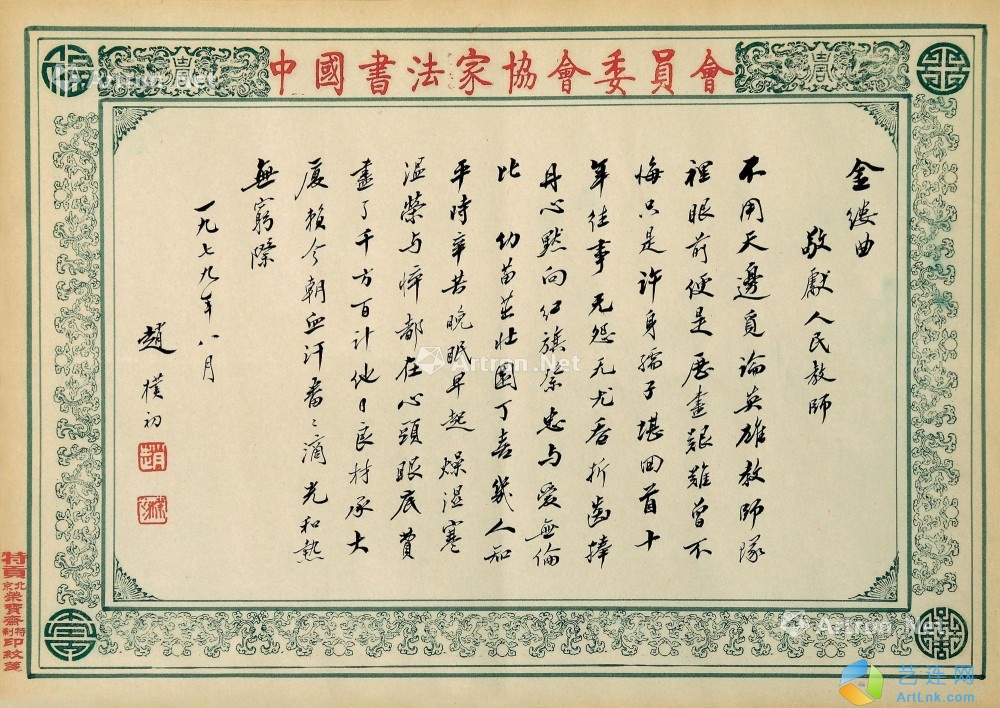 中國書法家協會委員會
金缕曲
敬獻人民教师
不用天邊覓論英雄教师隊
裡眼前便是歷盡艱難曾不
悔只是许身孺子堪回首十
年往事无怨无尤吞折齒捧
丹心默向红旗祭忠与爱無倫
比 幼苗茁壮園丁喜幾人知
平時辛苦晚眠早起燥湿寒
温榮与悴都在心頭眼底費
盡了千方百计他日良材承大
厦赖今朝血汗番〻滴光和熱
無窮際
一九七九年八月
趙樸初
特頁北京榮寶齋特制印紋箋
Artron.Net
Artron.Net
Artron.Net
艺连网
ArtLnk.com